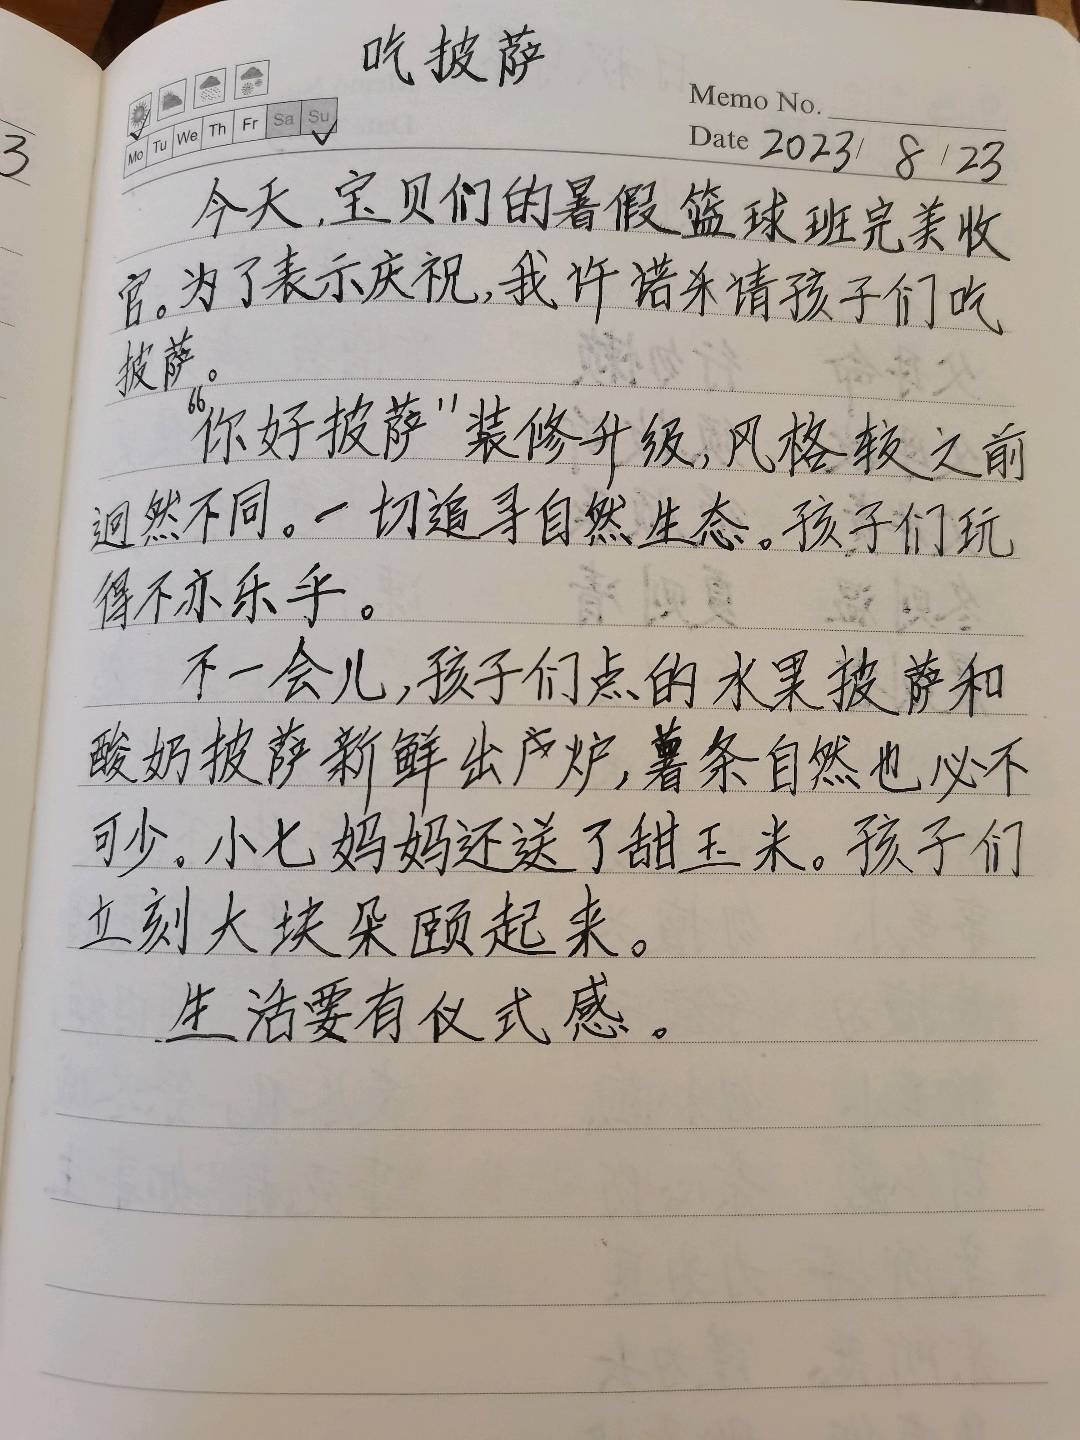 吃披萨
Memo No.
Mo Tu We Th Fr Sa Su
Date 2023/ 8 / 23
3
今天,宝贝们的暑假篮球班完美收
官。为了表示庆祝,我许诺来请孩子们吃
披萨。
“你好披萨"装修升级,风格较之前
迥然不同。一切追寻自然生态。孩子们玩
得不亦乐乎。
不一会儿,孩子们点的水果披萨和
酸奶披萨新鲜出炉,薯条自然也必不
可少。小七妈妈还送了甜玉米。孩子们
立刻大块朵颐起来。
生活要有仪式感。